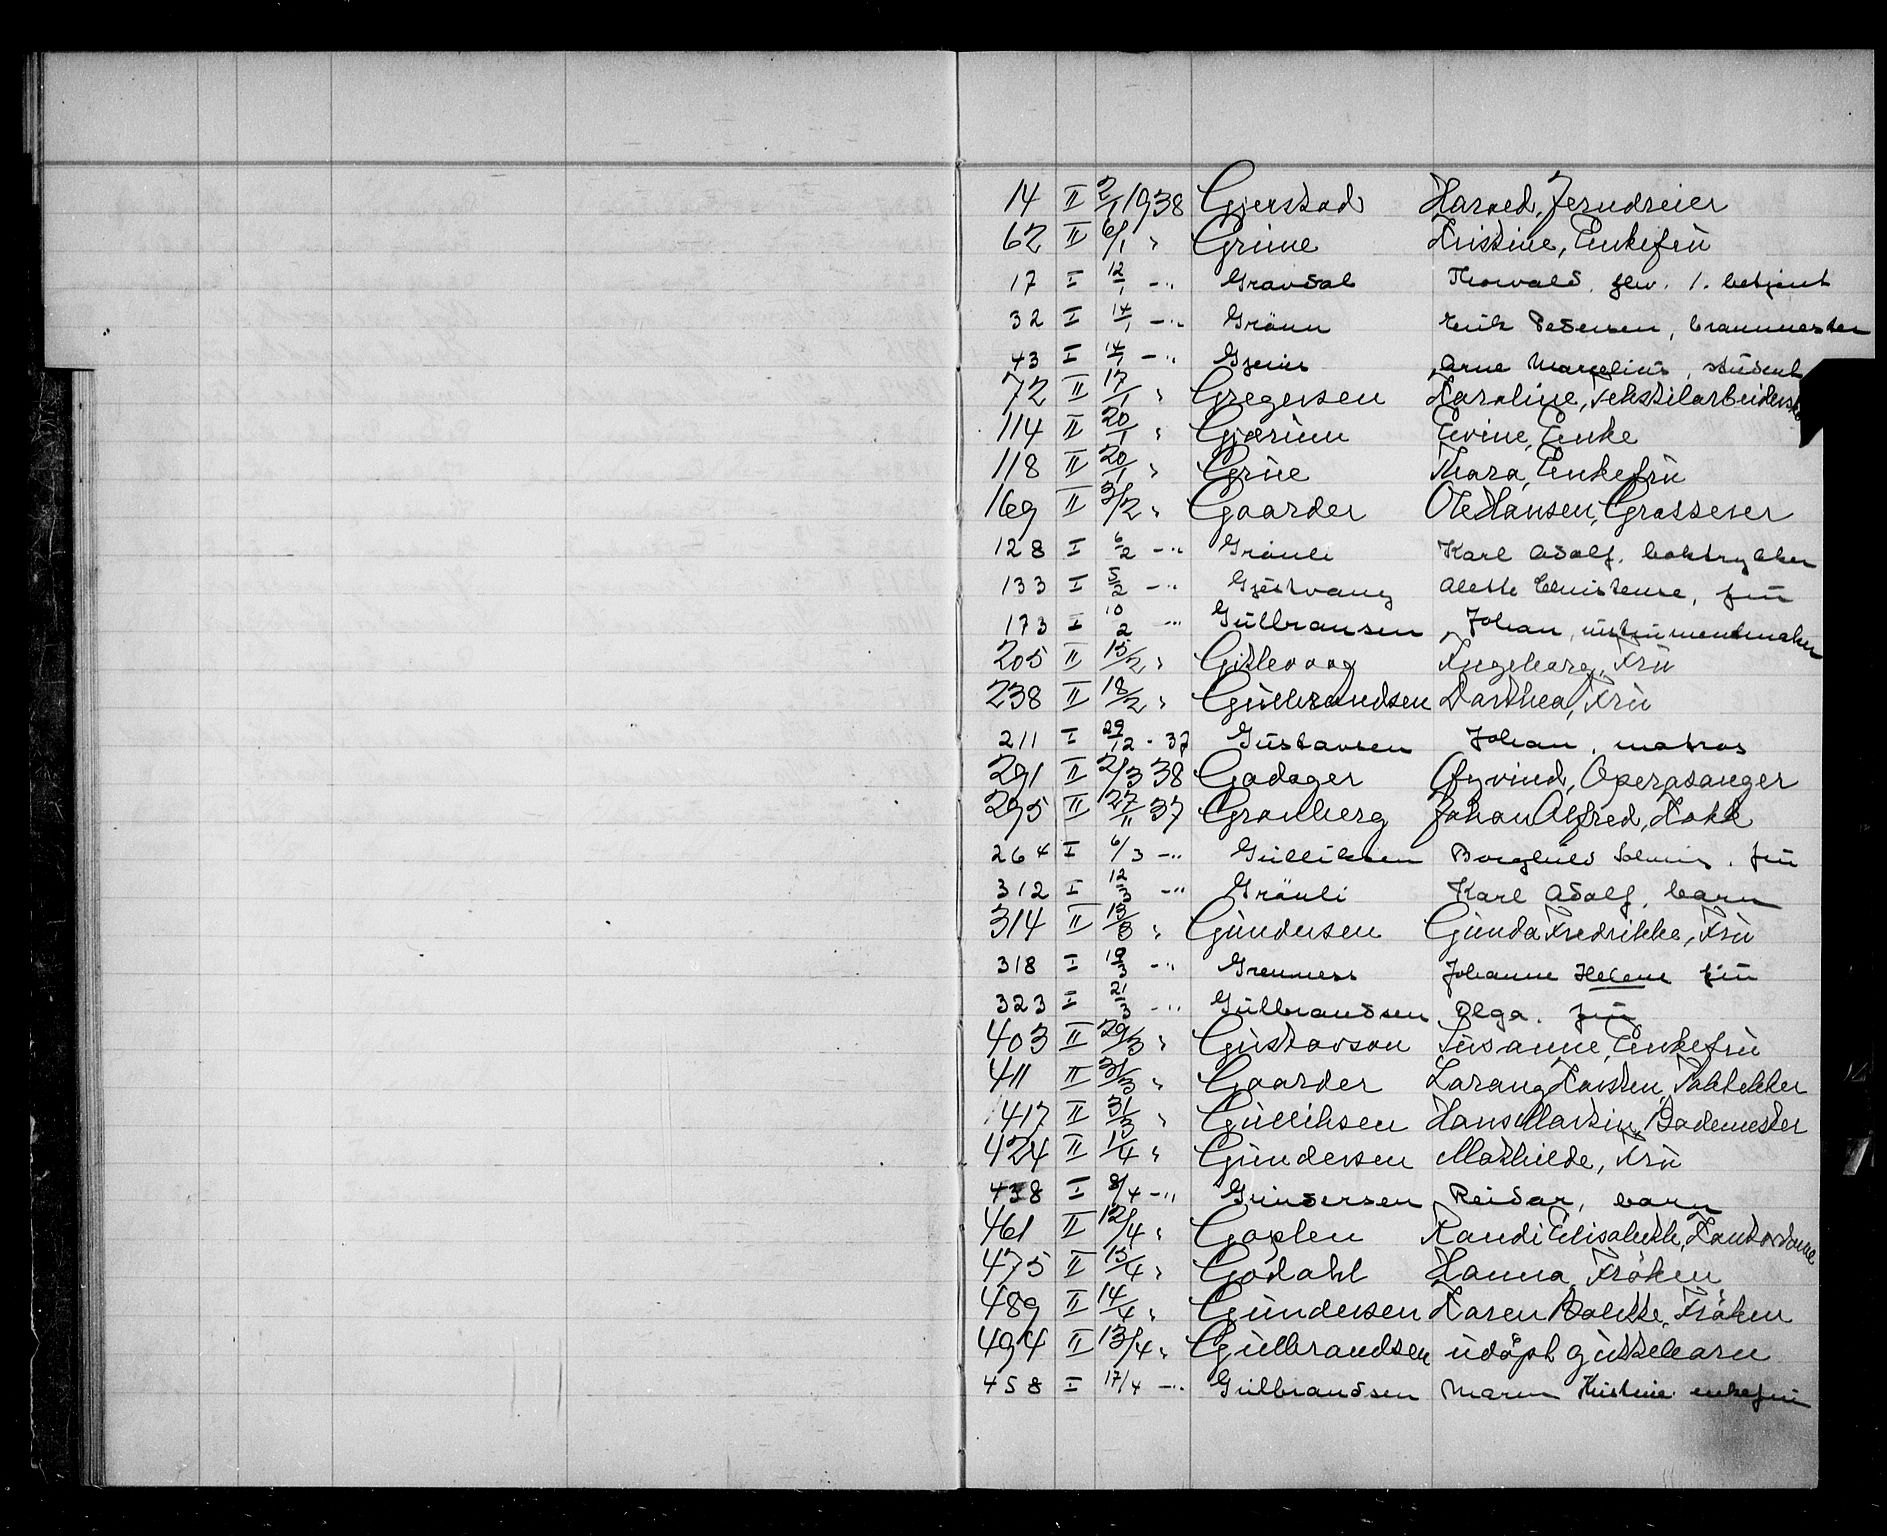 14 II 2/1 1938 Gjerstad Harald, Jerndreier
62 II 6/1 " Grüne Kristine, Enkefrü
17 I 12/1 -" Gravdal Thorvald, fhv. 1. betjent
32 I 14/1 -" Grönn Erik Pedersen, brannmester
43 I 14/1 -" Arne Marselius, stüdent
72 II 17/1 " Gregersen Karoline, Tekstilarbeiderske
114 II 20/1 " Gjærüm Evine, Enke
118 II 20/1 " Grüe Thora, Enkefrü
169 II 3/2 " Gaarder Ole Hansen, Grosserer
128 I 6/2 -" Grönli Karl Adolf, boktrykker
133 I 5/2 -" Gjestvang Alette Christense, frü
173 I 10/2 -" Gülbransen Johan, instrümentmaker
205 II 15/2 " Gitlevaag Ingeborg, Frü
238 II 18/2 " Güllbrandsen Dorthea, Frü
211 I 29/12 - 37 Güstavsen Johan, matros
291 II 2/3 38 Gadager Øyvind, Operasanger
295 II 27/11 37 Granberg Johan Alfred, Kokk
264 I 6/3 -" Gülliksen Borghild Solveig, frü
312 I 12/3 -" Grönli Karl Adolf, barn
314 II 15/3 " Gündersen Günda Fredrikke, Frü
318 I 19/3 -" Grenness Johanne Helene frü
323 I 21/3 -" Gülbrandsen Olga, frü
403 II 29/3 " Güstavson Süsanne, Enkefrü
411 II 31/3 " Gaarder Karsten, Taktekker
417 II 31/3 " Gülliksen Hans Martin, Bademester
424 II 1/4 " Gündersen Mathilde, Frü
438 I 8/4 -" Gündersen Reidar, barn
461 II 12/4 " Goplen Randi Elisabeth, Kontordame
475 II 15/4 " Gödahl Hanna, Fröken
489 II 14/4 " Gündersen Karen Bolette, Fröken
494 II 13/4 " Gülbrandsen üdöpt güttebarn
458 I 17/4 -" Gülbrandsen Maren Kristine enkefrü